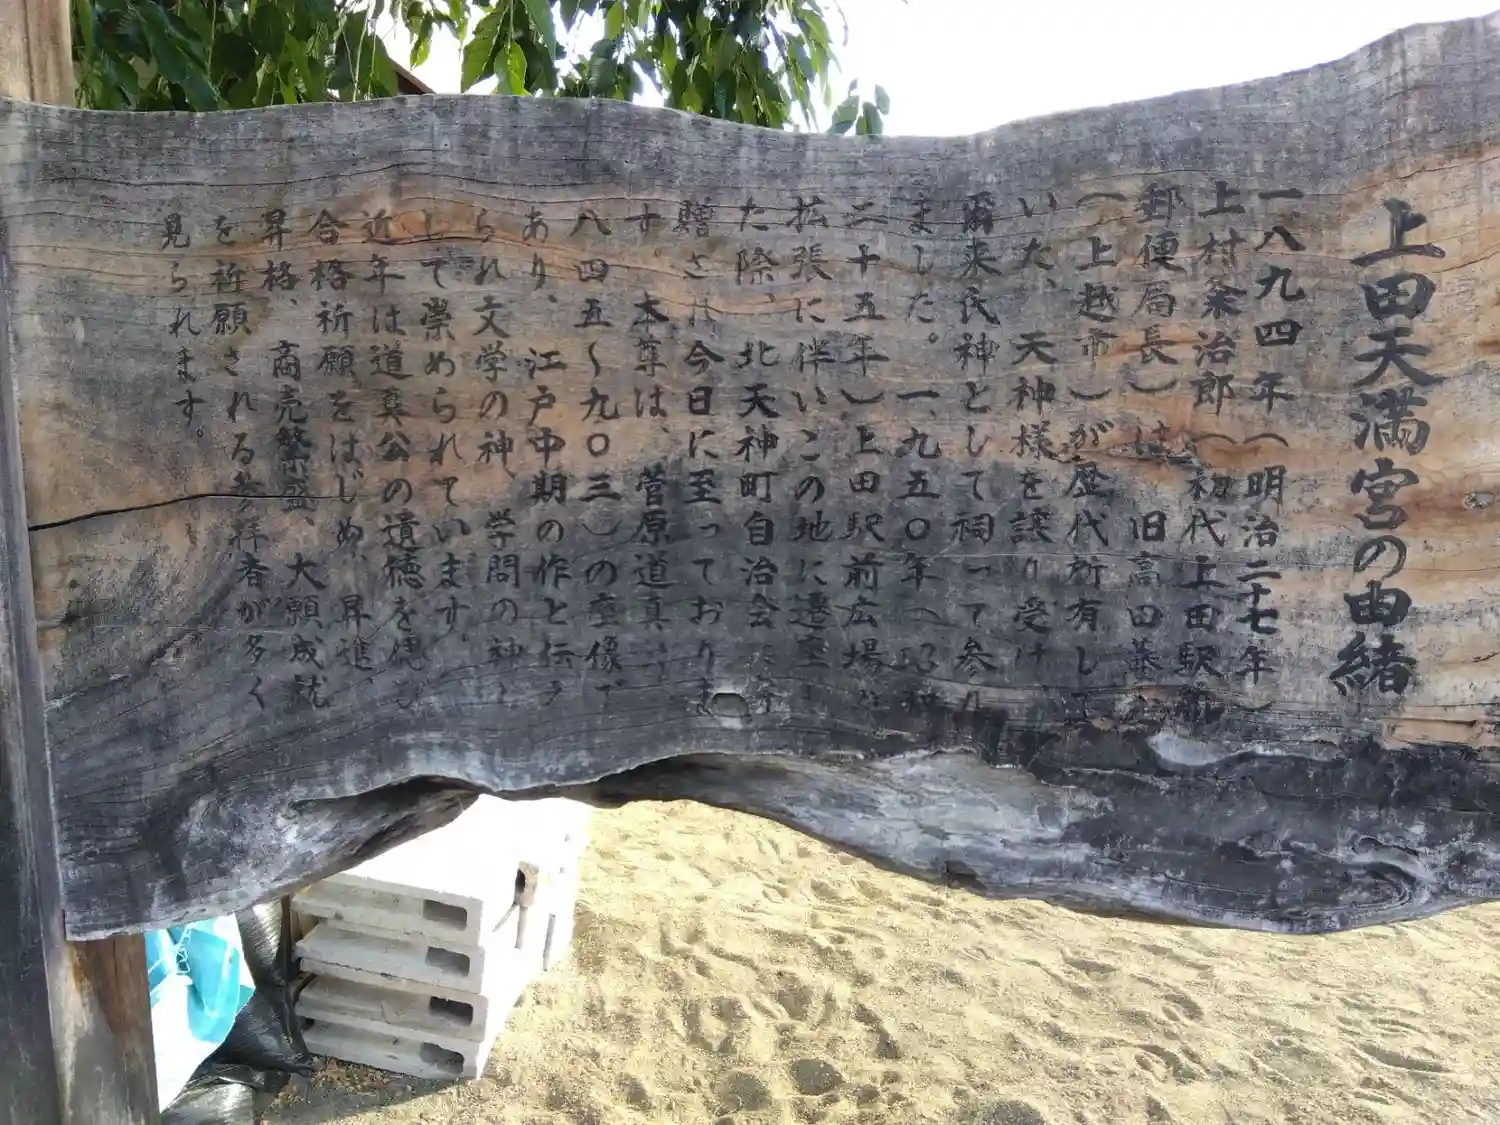 上田天満宮の由緒
一八九四年（明治二十七年）
上村粂治郎（初代上田駅前
郵便局長）は、旧高田藩
（上越市）が歴代所有して
いた、天神様を譲り受け
爾来氏神として祠って参り
ました。一九五〇年（昭和
二十五年）上田駅前広場
拡張に伴いこの地に遷座し
た際、北天神町自治会に寄
贈され今日に至っておりま
す。本尊は、菅原道真（
八四五～九〇三）の座像で
あり、江戸中期の作と伝え
られ文学の神、学問の神と
して崇められています。
近年は道真公の遺徳を偲び
合格祈願をはじめ、昇進、
昇格、商売繁盛、大願成就
を祈願される参拝者が多く
見られます。